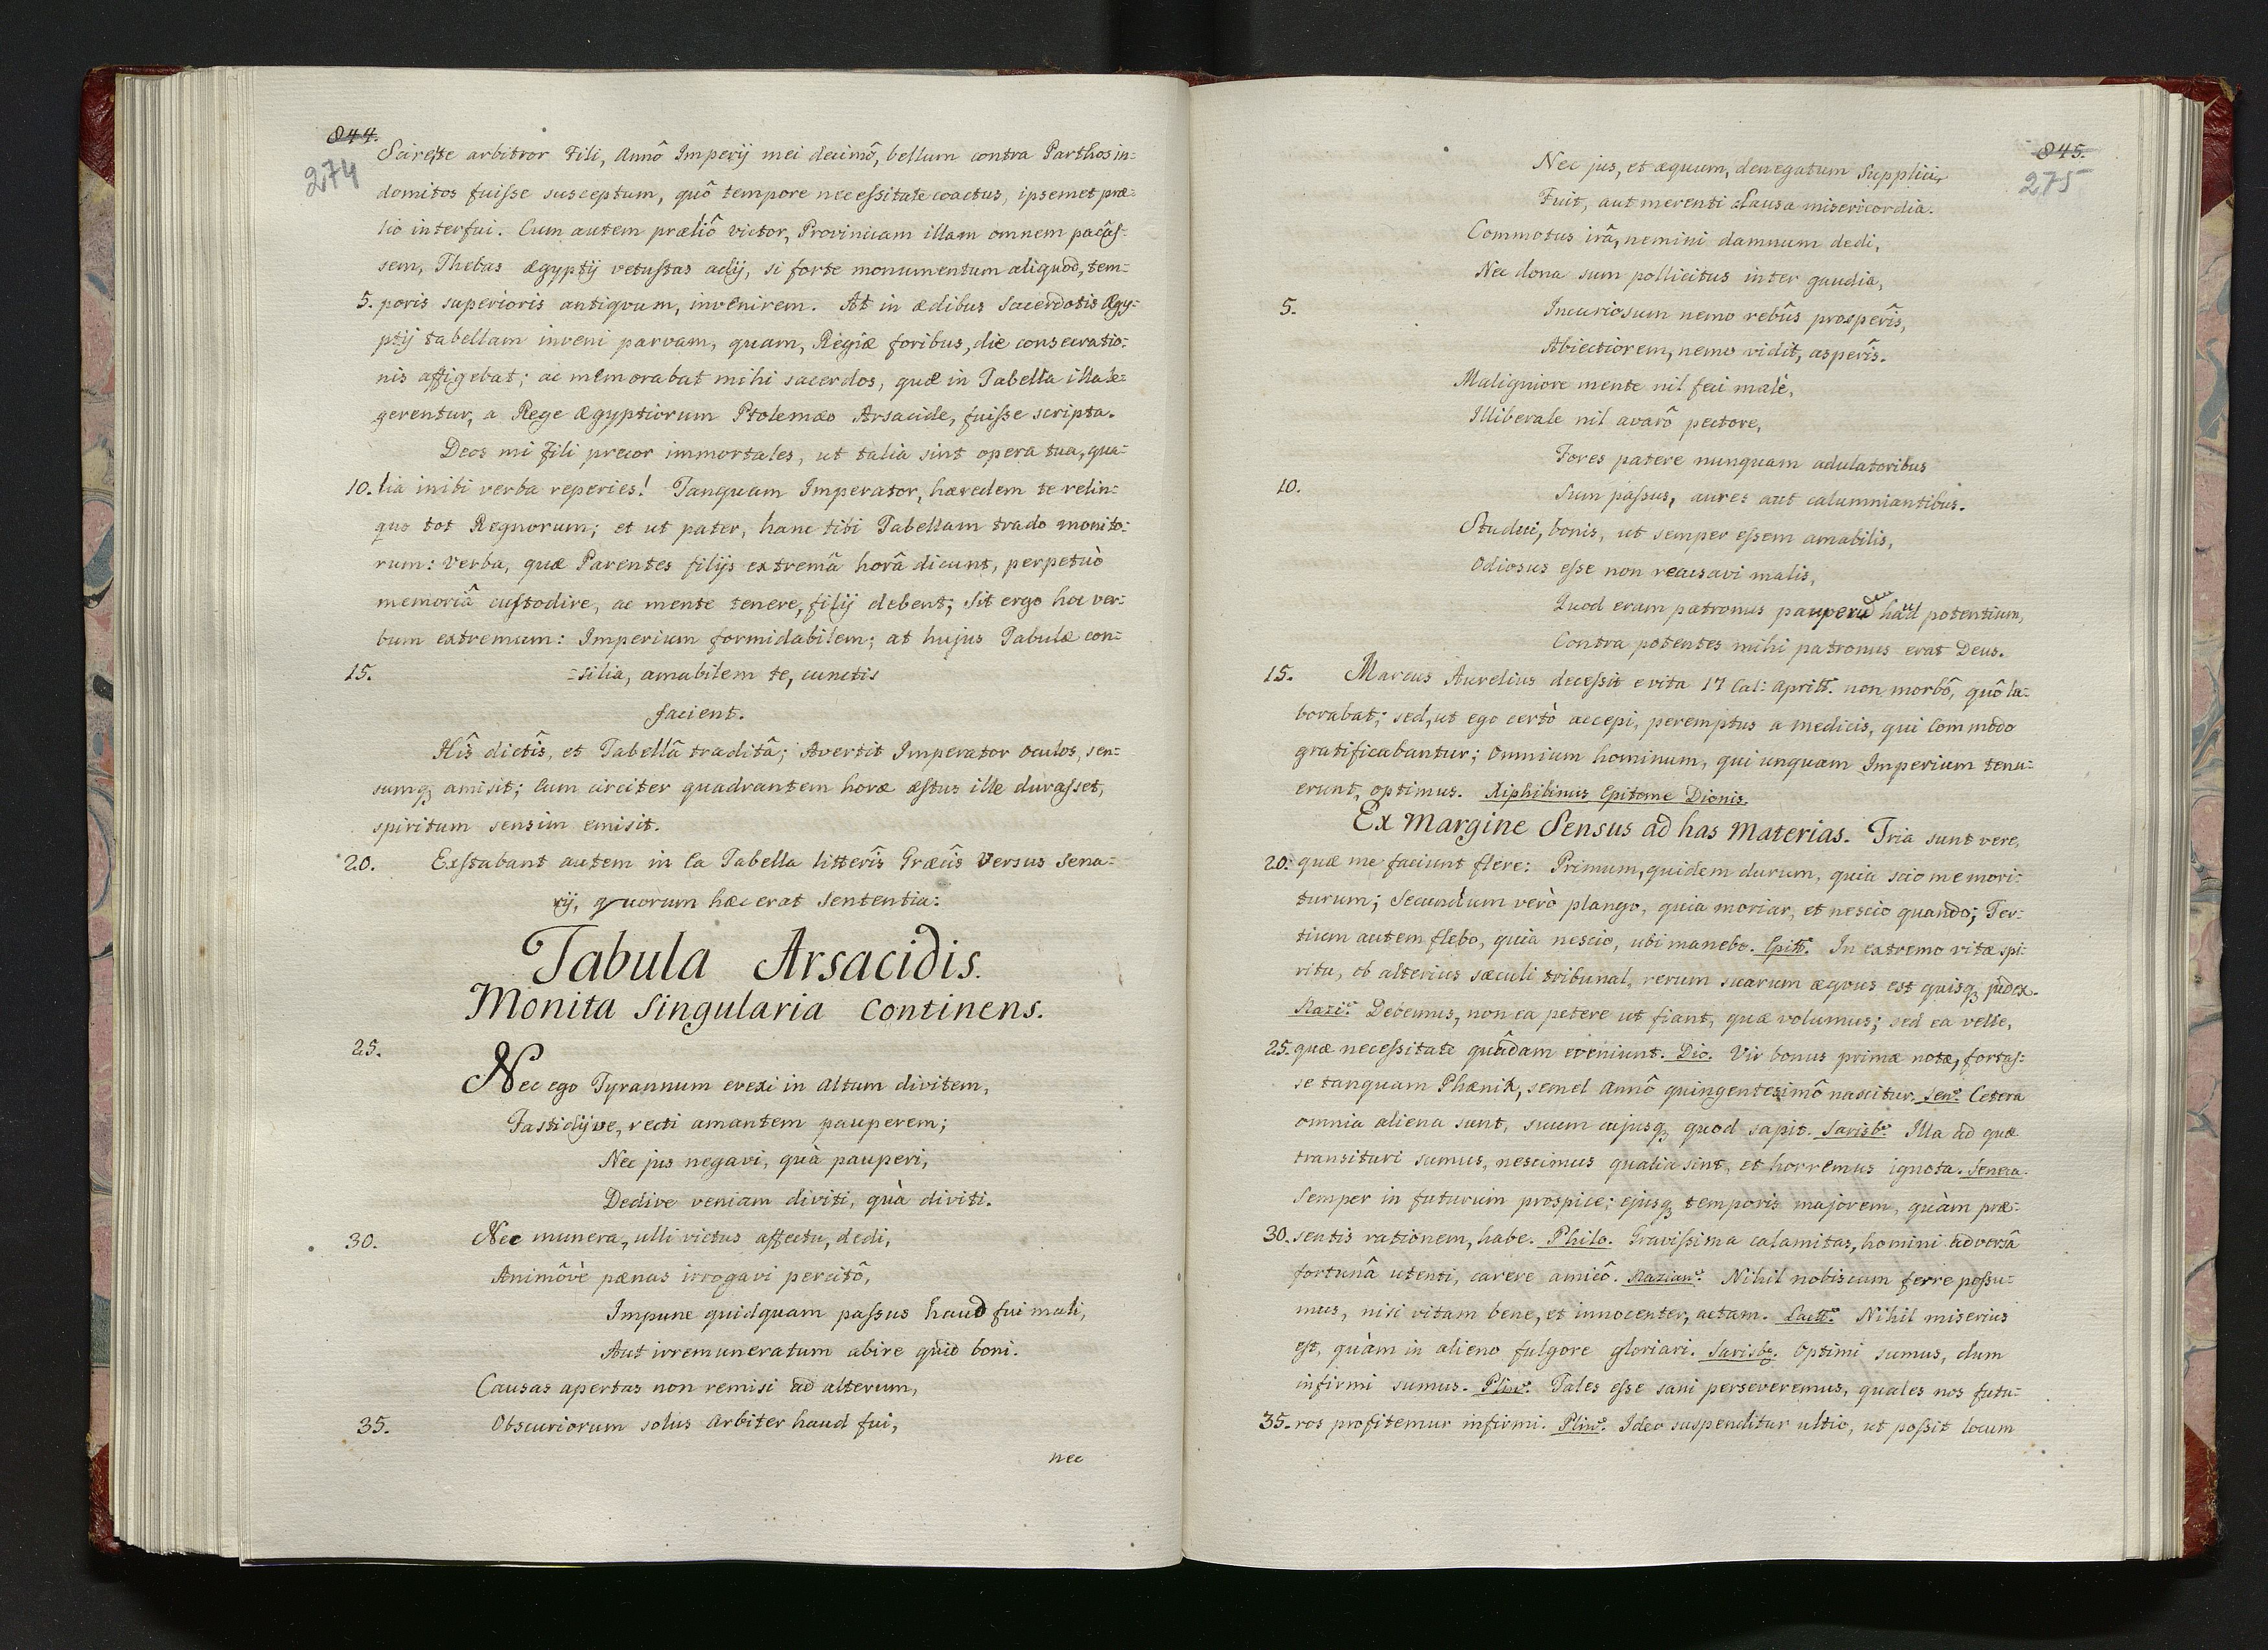 844.
274
Scire te arbitror Fili, Annô Imperij mei decimô, bellum contra Parthos in=
domitos fuisse susceptum, quô tempore necessitate coactus, ipsemet præ=
lio interfui. Cum autem præliô victor, Provinciam illam omnem pacâs=
sem, Thebas Ægyptij vetustas adij, si forte monumentum aliquod, tem=
5. poris superioris antiqvum, invenirem. At in ædibus Sacerdotis Ægy=
ptij tabellam inveni parvam, quam, Regiæ foribus, die consecratio=
nis affigebat; ac memorabat mihi sacerdos, quæ in Tabella illa le=
gerentur, a Rege Ægyptiorum Ptolemæo Arsacide, fuisse scripta.
Deos mi Fili precor immortales, ut talia sint opera tua, qua=
10. lia inibi verba reperies! Tanquam Imperator, hæredem te relin=
quo tot Regnorum; et ut pater, hanc tibi Tabellam trado monito=
rum: Verba, quæ Parentes filijs extremâ horâ dicunt, perpetuò
memoriâ custodire, ac mente tenere, filij debent; Sit ergo hoc ver=
bum extremum: Imperium formidabilem; at hujus Tabulæ con=
15. =silia, amabilem te, cunctis
facient.
Hîs dictîs, et Tabellâ traditâ; Avertit Imperator oculos, sen=
sumq; amisit; Cum circiter quadrantem horæ æstus ille durasset,
spiritum sensim emisit.
20. Exstabant autem in Ea Tabella litterîs Græcîs Versus Sena=
rij, quorum hæc erat Sententia:
Tabula Arsacidis.
Monita Singularia Continens.
25.
Nec ego Tyrannum evexi in altum divitem,
Fastidijve, recti amantem pauperem;
Nec jus negavi, quà pauperi,
Dedive veniam diviti, quà diviti.
30. Nec munera, ulli victus affectu, dedi,
Animôvè pænas irrogavi percitô,
Impune quidquam passus haud fui mali,
Aut irremuneratum abire quid boni.
Causas apertas non remisi ad alterum,
35. Obscuriorum solus Arbiter haud fui,
nec
845.
275
Nec jus, et æquum, denegatum Supplici,
Fuit, aut merenti clausa misericordia.
Commotus irâ, nemini damnum dedi,
Nec dona sum pollicitus inter gaudia,
5. Incuriosum nemo rebûs prosperîs,
Abiectiorem, nemo vidit, asperîs.
Maligniore mente nil feci malè,
Illiberale nil avarô pectore,
Fores patere nunquam adulatoribus
10. Sum passus, aures aut calumniantibus.
Studui, bonis, ut semper essem amabilis,
Odiosus esse non recusavi malis,
Quod eram patronus pauperum haud potentium,
Contra potentes mihi patronus erat Deus.
15. Marcus Aurelius decessit e vita 17 Cal: Aprill. non morbô, quô la=
borabat; sed, ut ego certò accepi, peremptus a medicis, qui Commodo
gratificabantur; Omnium hominum, qui unquam Imperium tenu=
erunt, optimus. Xiphilinus Epitome Dionis.
Ex Margine Sensus ad has Materias. Tria sunt vere,
20. quæ me faciunt flere: Primum, quidem durum, quia scio me mori=
turum; Secundum verò plango, quia moriar, et nescio quando; Ter=
tium autem flebo, quia nescio, ubi manebo. Epitt. In extremo vitæ spi=
ritu, ob alterius sæculi tribunal, rerum suarum æqvus est quisq; judex.
Nazi: Debemus, non ea petere ut fiant, quæ volumus; sed ea velle,
25. quæ necessitate quâdam eveniunt. Dio. Vir bonus primæ notæ, fortas=
se tanquam Phænix, semel Annô quingentesimô nascitur. Sen: Cetera
omnia aliena sunt, suum cujusq; quod sapit. Sarisb: Illa ad quæ
transituri sumus, nescimus qualia sint, et horremus ignota. Seneca.
Semper in futurum prospice; ejusq; temporis majorem, quàm præ=
30. sentis rationem, habe. Philo. Gravissima calamitas, homini adversâ
fortunâ utenti, carere amicô. Nazian: Nihil nobiscum ferre possu=
mus, nisi vitam bene, et innocenter, actam. Lactt: Nihil miserius
est, quàm in alieno fulgore gloriari. Sarisbg. Optimi sumus, dum
infirmi sumus. Plin: Tales esse sani perseveremus, quales nos futu=
35. ros profitemur infirmi. Plin: Ideo suspenditur ultio, ut possit locum